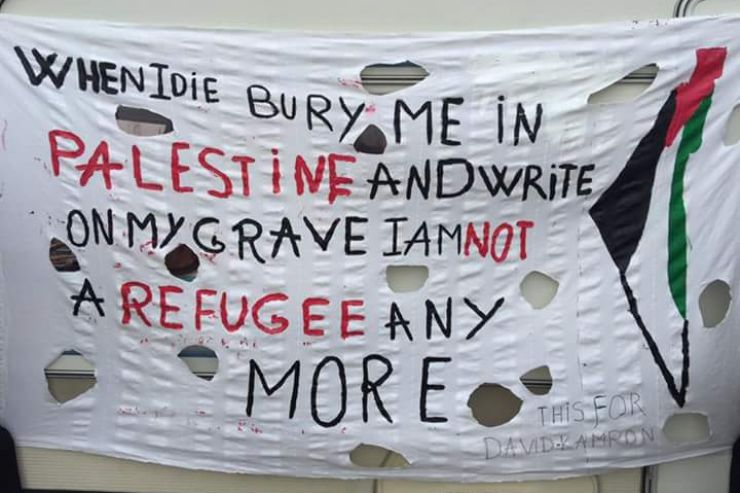 WHEN I DIE BURY ME IN
PALESTINE AND WRITE
ON MY GRAVE I AM NOT
A REFUGEE ANY
MORE
THIS FOR
DAVID KAMRON